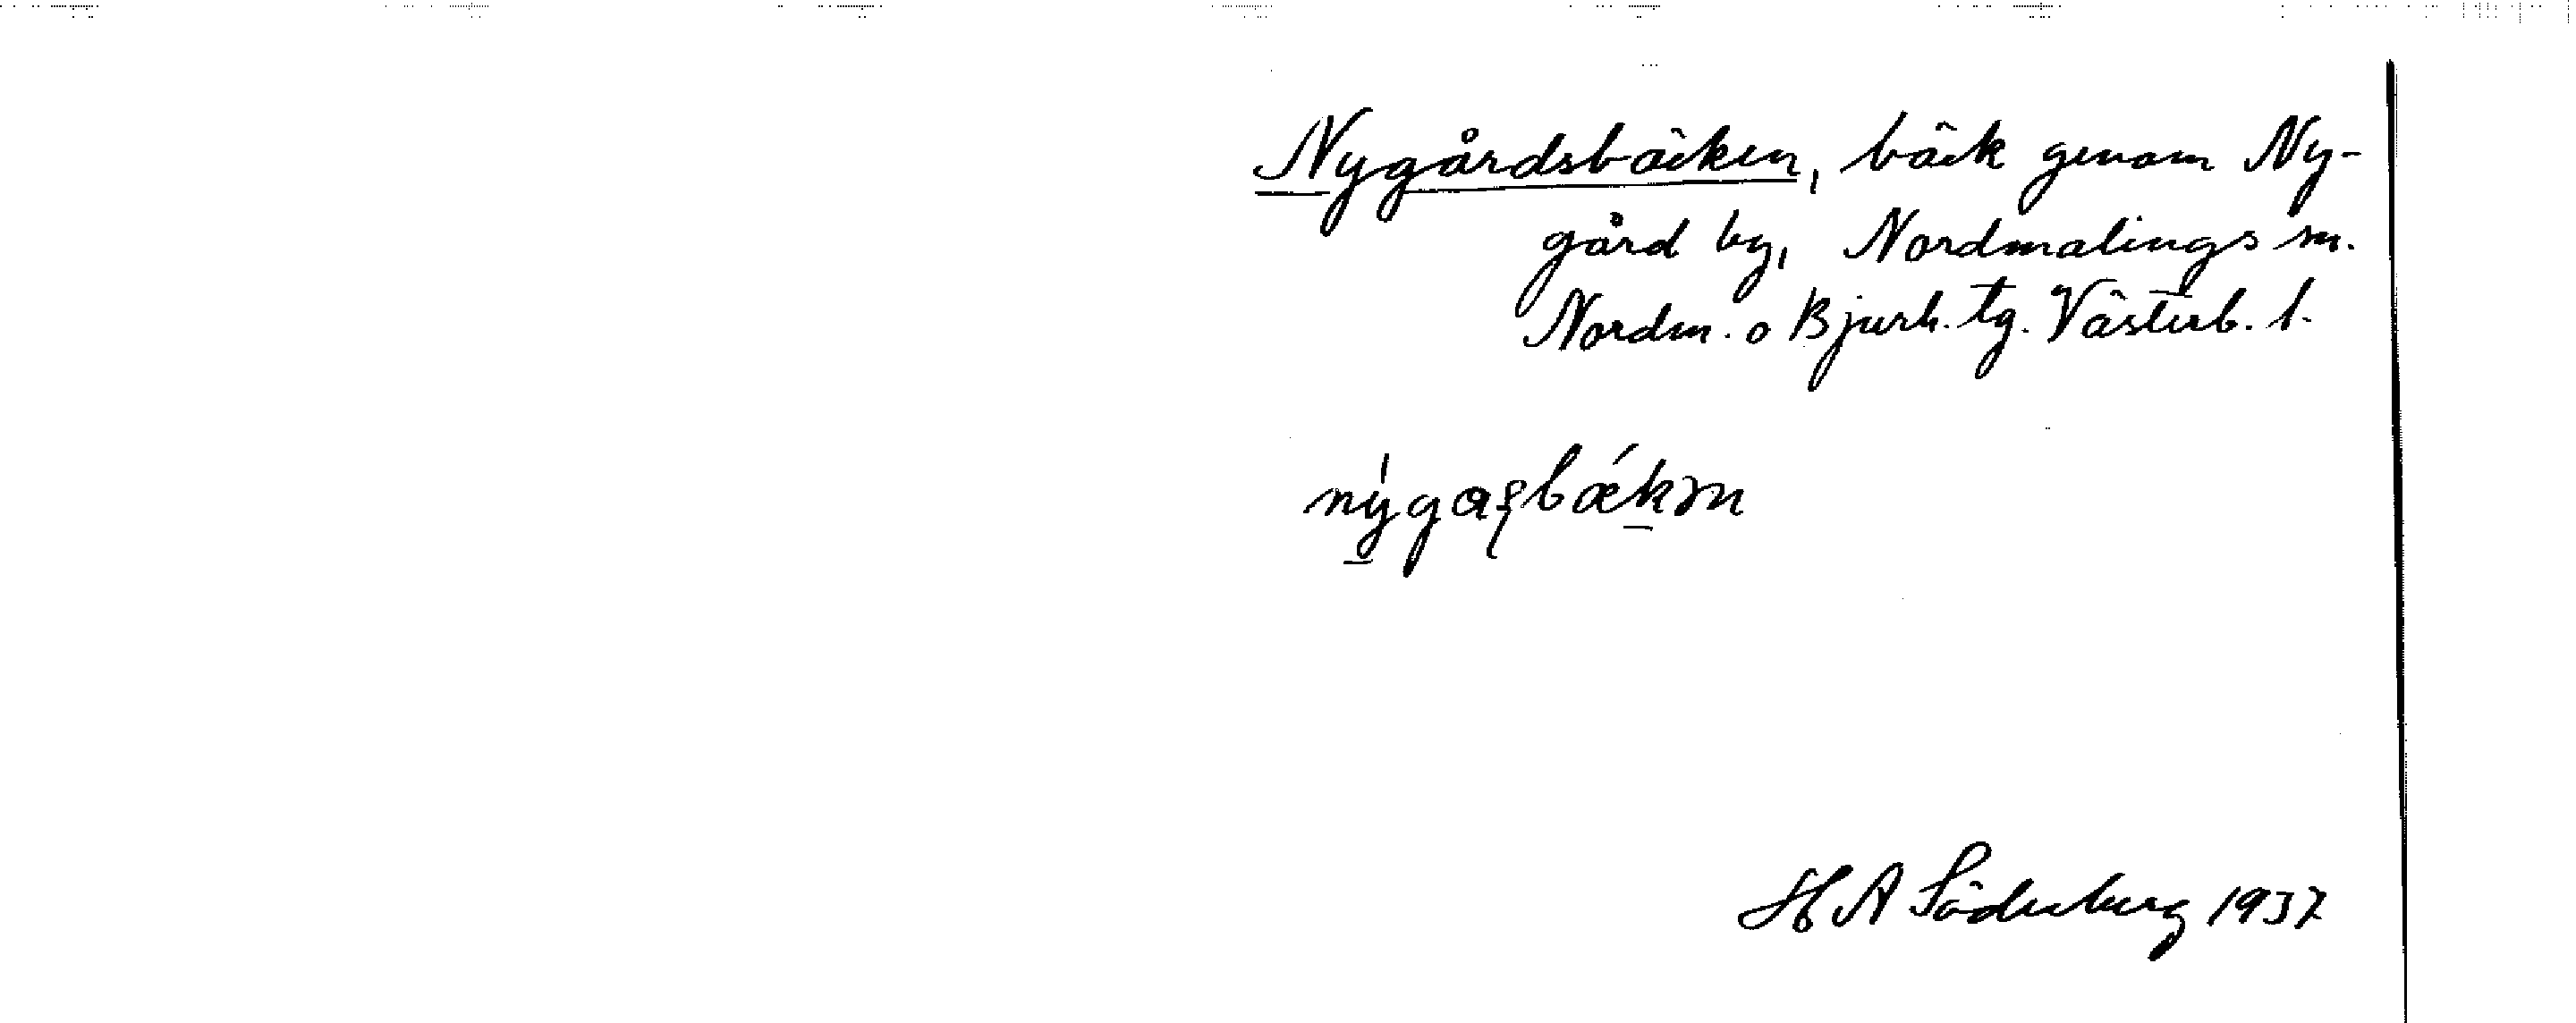 Nygårdsbäcken, bäck genom Ny-
gård by, Nordmalings sn.
Nordm. o Bjurh. tg. Västerb. l.
nýgaʂbǽkən
H A Söderberg 1937